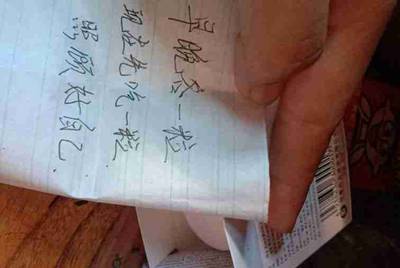 早晚各一粒
现在先吃一粒
照顾好自己